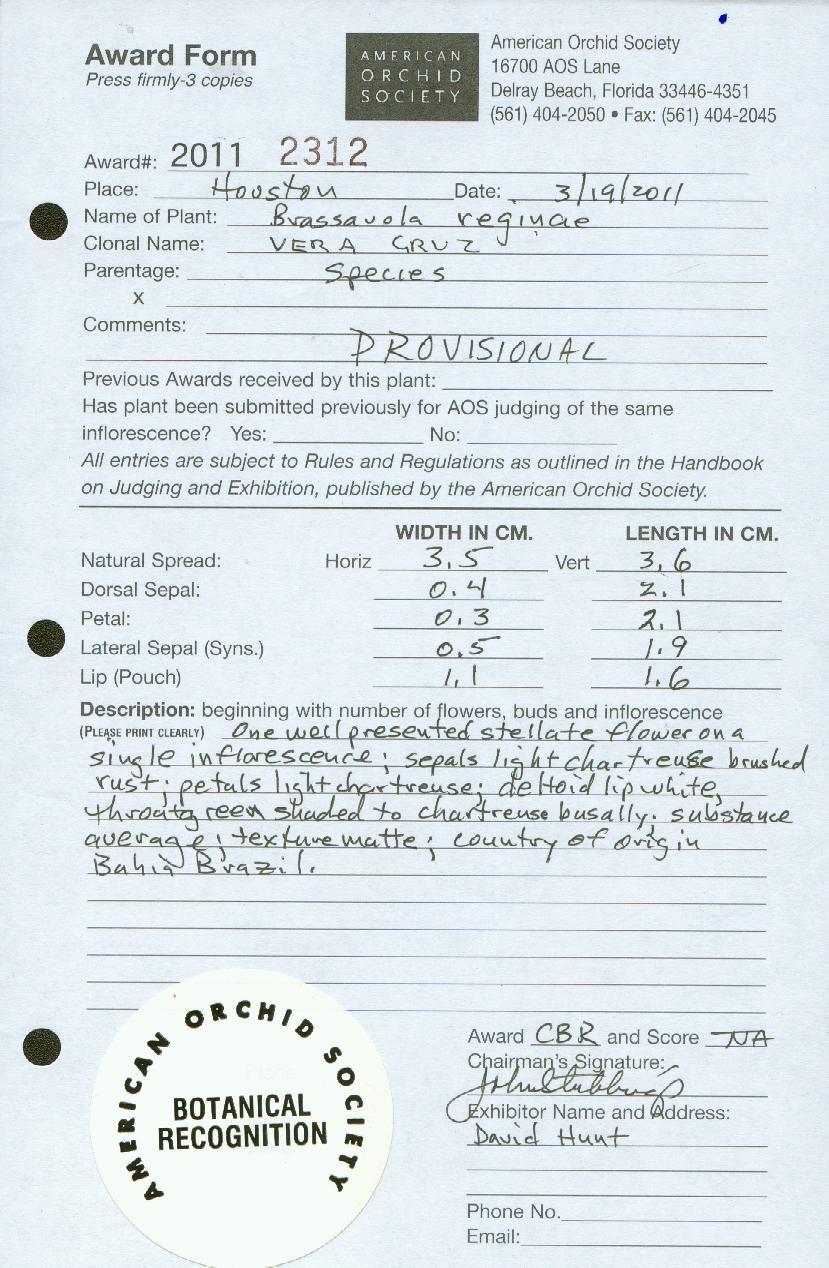 Award Form
Press firmly-3 copies
AMERICAN
ORCHID
SOCIETY
American Orchid Society
16700 AOS Lane
Delray Beach, Florida 33446-4351
(561) 404-2050 • Fax: (561) 404-2045
Award#: 2011 2312
Place: Houston Date: 3/19/2011
Name of Plant: Brassavola reginae
Clonal Name: VERA CRUZ
Parentage: Species
x
Comments:
PROVISIONAL
Previous Awards received by this plant:
Has plant been submitted previously for AOS judging of the same
inflorescence? Yes: No:
All entries are subject to Rules and Regulations as outlined in the Handbook
on Judging and Exhibition, published by the American Orchid Society.
WIDTH IN CM. LENGTH IN CM.
Natural Spread: Horiz 3.5 Vert 3.6
Dorsal Sepal: 0.4 2.1
Petal: 0.3 2.1
Lateral Sepal (Syns.) 0.5 1.9
Lip (Pouch) 1.1 1.6
Description: beginning with number of flowers, buds and inflorescence
(PLEASE PRINT CLEARLY) One well presented stellate flower on a
single inflorescence; sepals light chartreuse brushed
rust; petals light chartreuse; deltoid lip white,
throat green shaded to chartreuse busally. substance
average; texture matte; country of origin
Bahia Brazil.
AMERICAN ORCHID SOCIETY
BOTANICAL
RECOGNITION
Award CBR and Score NA
Chairman's Signature:
John Stubbings
Exhibitor Name and Address:
David Hunt
Phone No.
Email: